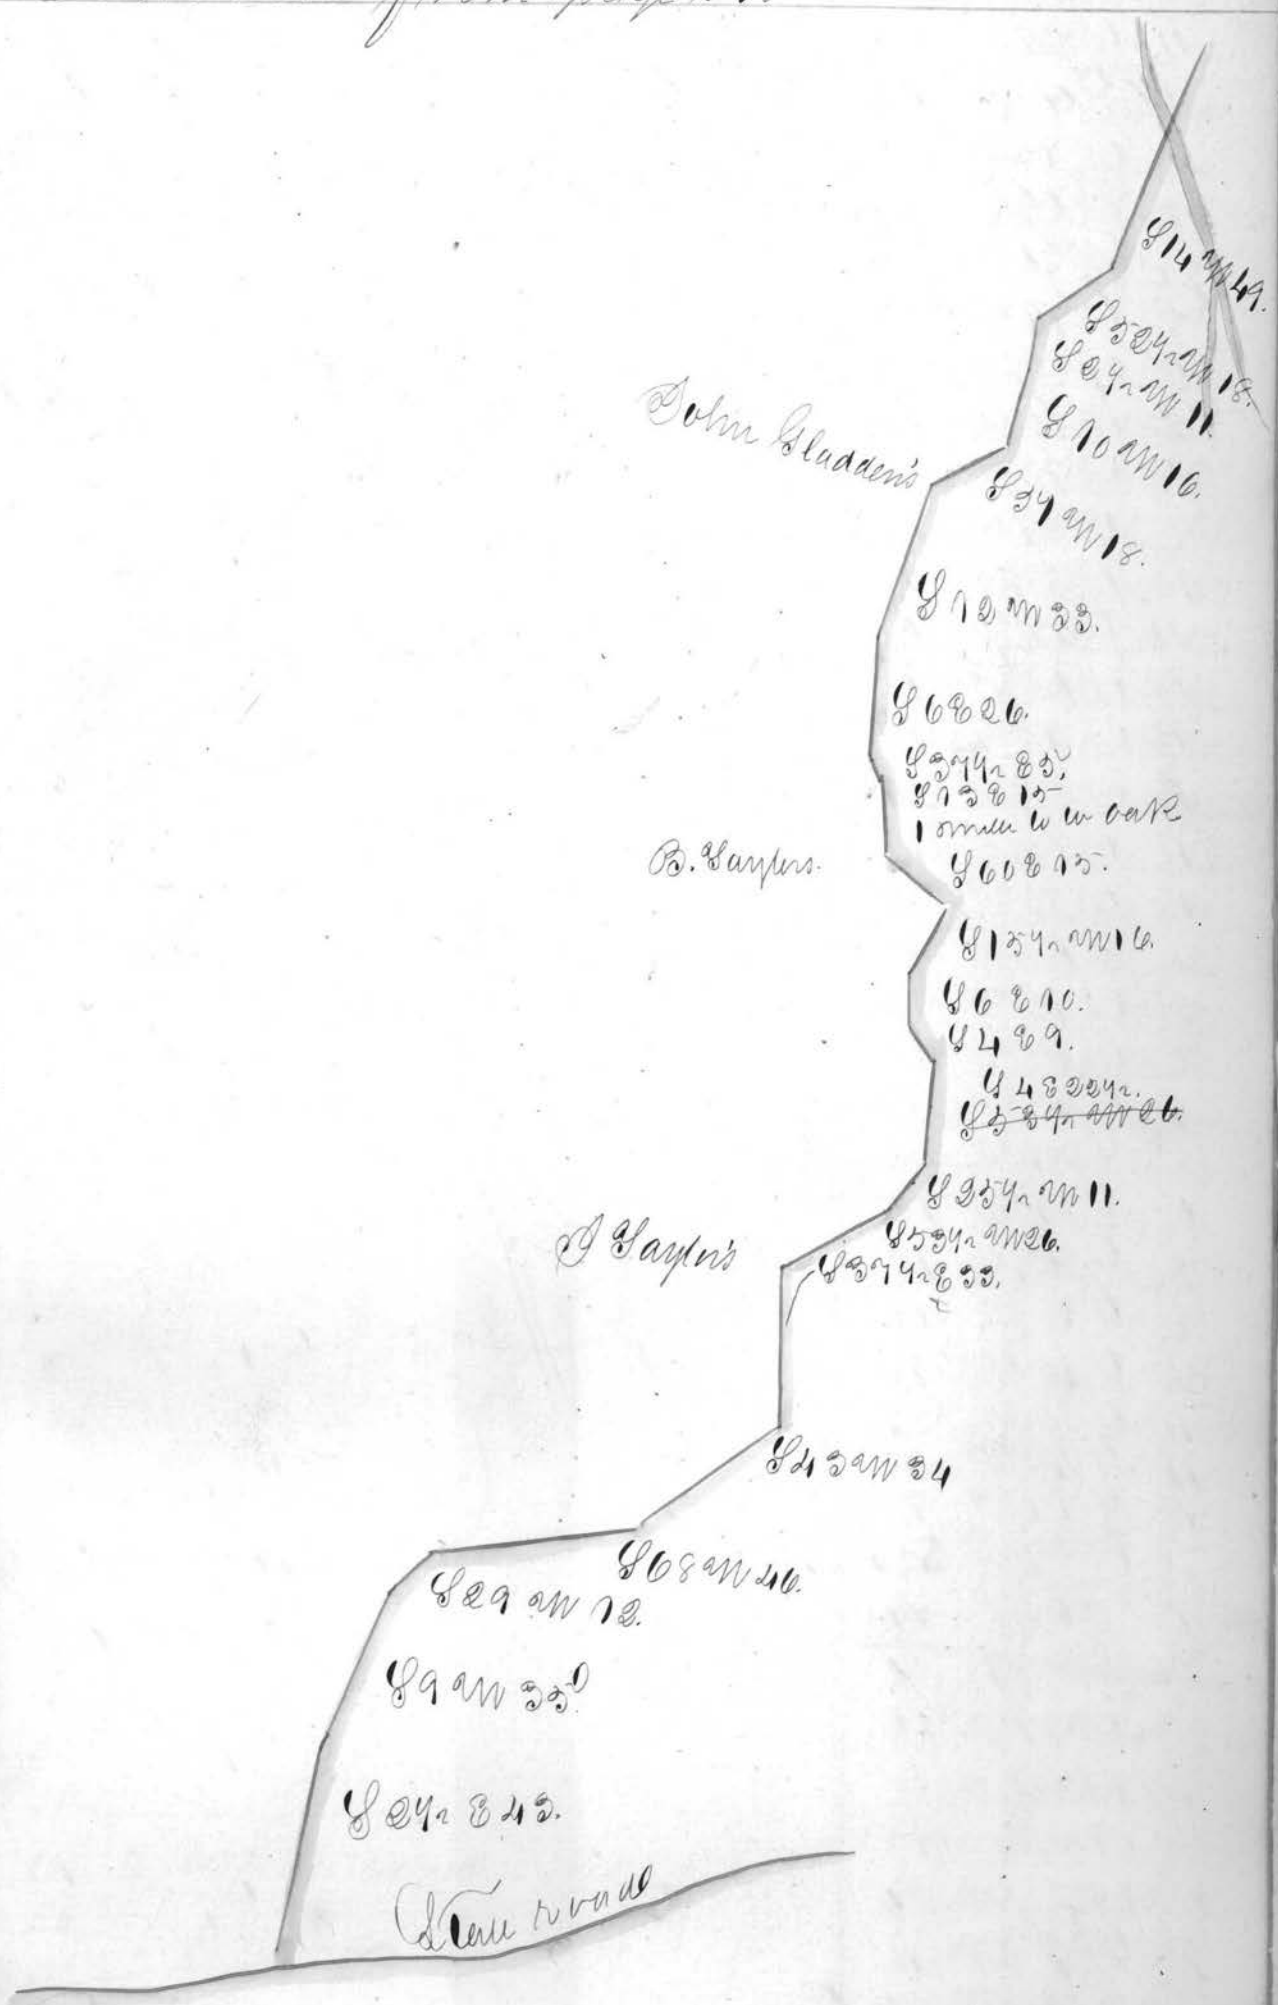 from page
S 14 W 49.
S 52 1/2 W 18.
S 2 1/2 W 11
S 10 W 16.
John Gladden's
S 57 W 18.
S 12 W 33.
S 6 E 26.
S 37 1/2 E 5.
S 13 E 15
1 mile to w oak
B. Saylers.
S 60 E 15.
S 15 1/2 W 16.
S 6 E 10.
S 4 E 9.
S 4 E 22 1/2.
S 53 1/2 W 26.
S 25 1/2 W 11.
S 53 1/2 W 26.
J Saylers
S 37 1/2 E 33.
S 43 W 34
S 68 W 46.
S 29 W 12.
S 9 W 35
S 2 1/2 E 43.
State road